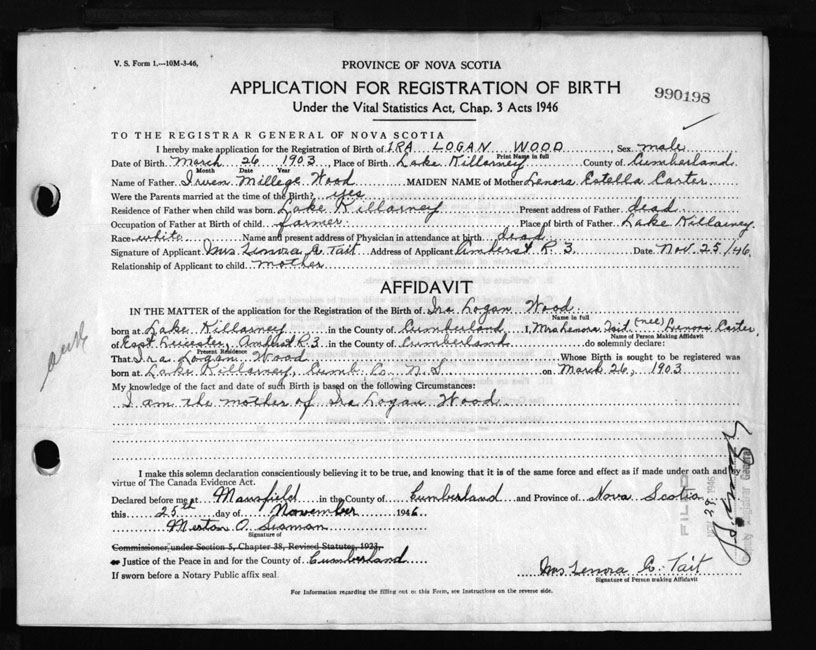 V. S. Form 1.—10M-3-46,
PROVINCE OF NOVA SCOTIA
APPLICATION FOR REGISTRATION OF BIRTH
990198
Under the Vital Statistics Act, Chap. 3 Acts 1946
TO THE REGISTRAR GENERAL OF NOVA SCOTIA
I hereby make application for the Registration of Birth of IRA LOGAN WOOD, Sex male
Print Name in full
Date of Birth March 26 1903, Place of Birth Lake Killarney County of Cumberland
Month Date Year
Name of Father Irven Millege Wood MAIDEN NAME of Mother Lenora Estella Carter
Were the Parents married at the time of the Birth? yes
Residence of Father when child was born Lake Killarney Present address of Father dead
Occupation of Father at Birth of child farmer Place of birth of Father Lake Killarney
Race white Name and present address of Physician in attendance at birth dead
Signature of Applicant Mrs Lenora E. Tait Address of Applicant Amherst R. 3. Date Nov. 25/46
Relationship of Applicant to child mother
AFFIDAVIT
IN THE MATTER of the application of the Registration of the Birth of Ira Logan Wood
Name in full
born at Lake Killarney in the County of Cumberland I, Mrs Lenora Tait (nee) Lenora Carter,
Name of Person Making Affidavit
of East Leicester, Amherst R3 in the County of Cumberland do solemnly declare:
Present Residence
That Ira Logan Wood Whose Birth is sought to be registered was
born at Lake Killarney, Cumb. Co. N.S. on March 26, 1903
My knowledge of the fact and date of such Birth is based on the following Circumstances:
I am the mother of Ira Logan Wood
I make this solemn declaration conscientiously believing it to be true, and knowing that it is of the same force and effect as if made under oath and by
virtue of The Canada Evidence Act.
Declared before me at Mansfield in the County of Cumberland and Province of Nova Scotia
this 25th day of November 1946
Merton O. Seaman
Signature of
Commissioner under Section 5, Chapter 38, Revised Statutes, 1923.
or Justice of the Peace in and for the County of Cumberland
If sworn before a Notary Public affix seal.
Mrs Lenora E. Tait
Signature of Person making Affidavit
For Information regarding the filling out of this Form, see Instructions on the reverse side.
FILED
NOV 29 1946